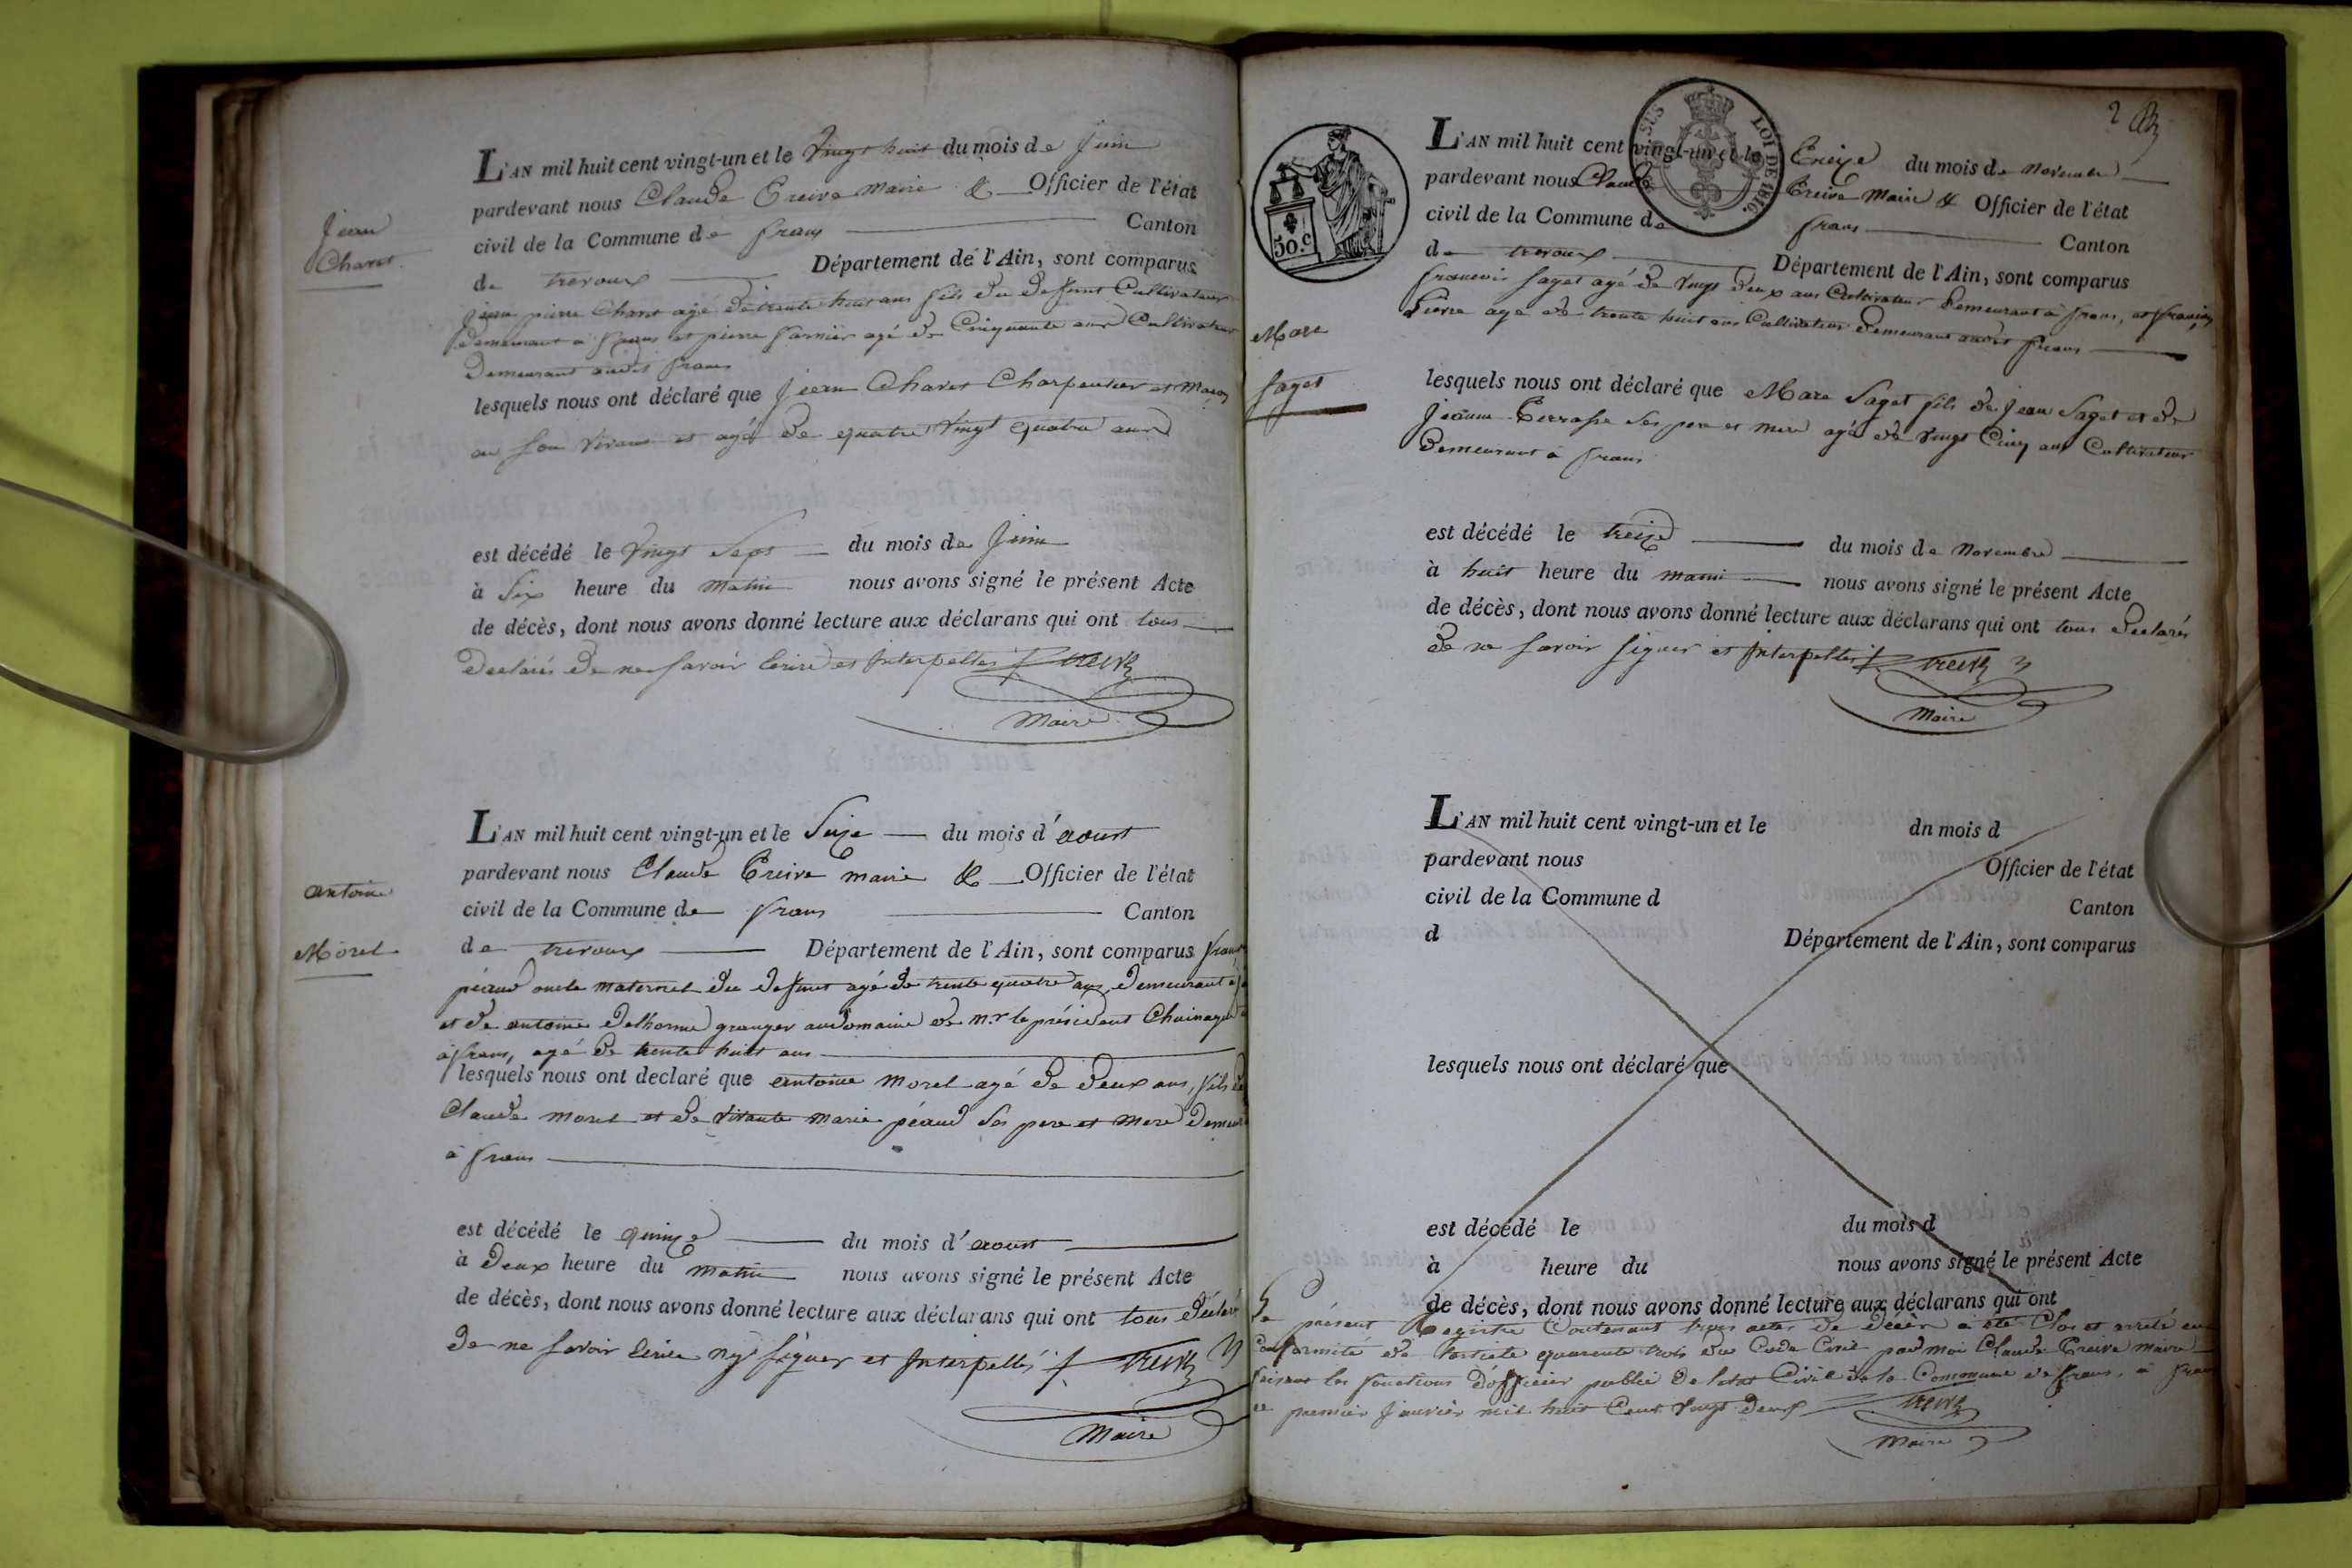 Jean
Charet
L'AN mil huit cent vingt-un et le Vingt huit du mois de Juin
pardevant nous Claude Creive Maire & Officier de l'état
civil de la Commune de frans Canton
de trevoux Département de l'Ain, sont comparus
jean pierre Charet agé de trente huit ans fils du deffunt Cultivateur
demeurant a frans et pierre garnier agé de Cinquante ans Cultivateur
demeurant audit frans
lesquels nous ont déclaré que jean Charet Charpentier et Maçon
en son Vivant et agé de quatre Vingt quatre ans
est décédé le Vingt Sept du mois de Juin
à Six heure du Matin nous avons signé le présent Acte
de décès, dont nous avons donné lecture aux déclarans qui ont tous
declarés de ne savoir Ecrire et Interpellés
Maire
antoine
Morel
L'AN mil huit cent vingt-un et le Seize du mois d'aoust
pardevant nous Claude Creive maire & Officier de l'état
civil de la Commune de frans Canton
de trevoux Département de l'Ain, sont comparus
péaud oncle maternel du deffunt agé de trente quatre ans, demeurant a
et de antoine Delhorme granger audomaine de Mr. le président
à frans, agé de trente huit ans
lesquels nous ont declaré que antoine Morel agé de deux ans, fils de
Claude Morel et de Vivante Marie péaud Ses pere et Mere
à frans
est décédé le quinze du mois d'aoust
à Deux heure du matin nous avons signé le présent Acte
de décès, dont nous avons donné lecture aux déclarans qui ont tous Déclaré
de ne savoir Ecrire ny signer et Interpellés
Maire
2
SUS LOI DE 1816.
50.c
Marc
Saget
L'AN mil huit cent vingt-un et le Treize du mois de Novembre
pardevant nous Claude Creive Maire & Officier de l'état
civil de la Commune de frans Canton
de trevoux Département de l'Ain, sont comparus
francois Saget agé de Vingt deux ans Cultivateur demeurant à frans, et françois
agé de trente huit ans Cultivateur demeurant audit frans
lesquels nous ont déclaré que Marc Saget fils de Jean Saget et de
Jeanne Terrasse Ses pere et Mere agé de Vingt Cinq ans Cultivateur
demeurant à frans
est décédé le treize du mois de Novembre
à huit heure du matin nous avons signé le présent Acte
de décès, dont nous avons donné lecture aux déclarans qui ont tous Declarés
de ne savoir signer et Interpellés
Maire
L'AN mil huit cent vingt-un et le dn mois d
pardevant nous Officier de l'état
civil de la Commune d Canton
d Département de l'Ain, sont comparus
lesquels nous ont déclaré que
est décédé le du mois d
à heure du nous avons signé le présent Acte
de décès, dont nous avons donné lecture aux déclarans qui ont
Le présent Registre Contenant trois actes de décès a été Clos et arrêté en
Conformité de l'article quarante trois du Code Civil par moi Claude Creive maire
faisant les fonctions d'officier public de l'état Civil de la Commune de frans, à frans
ce premier Janvier mil huit Cent Vingt deux
Maire